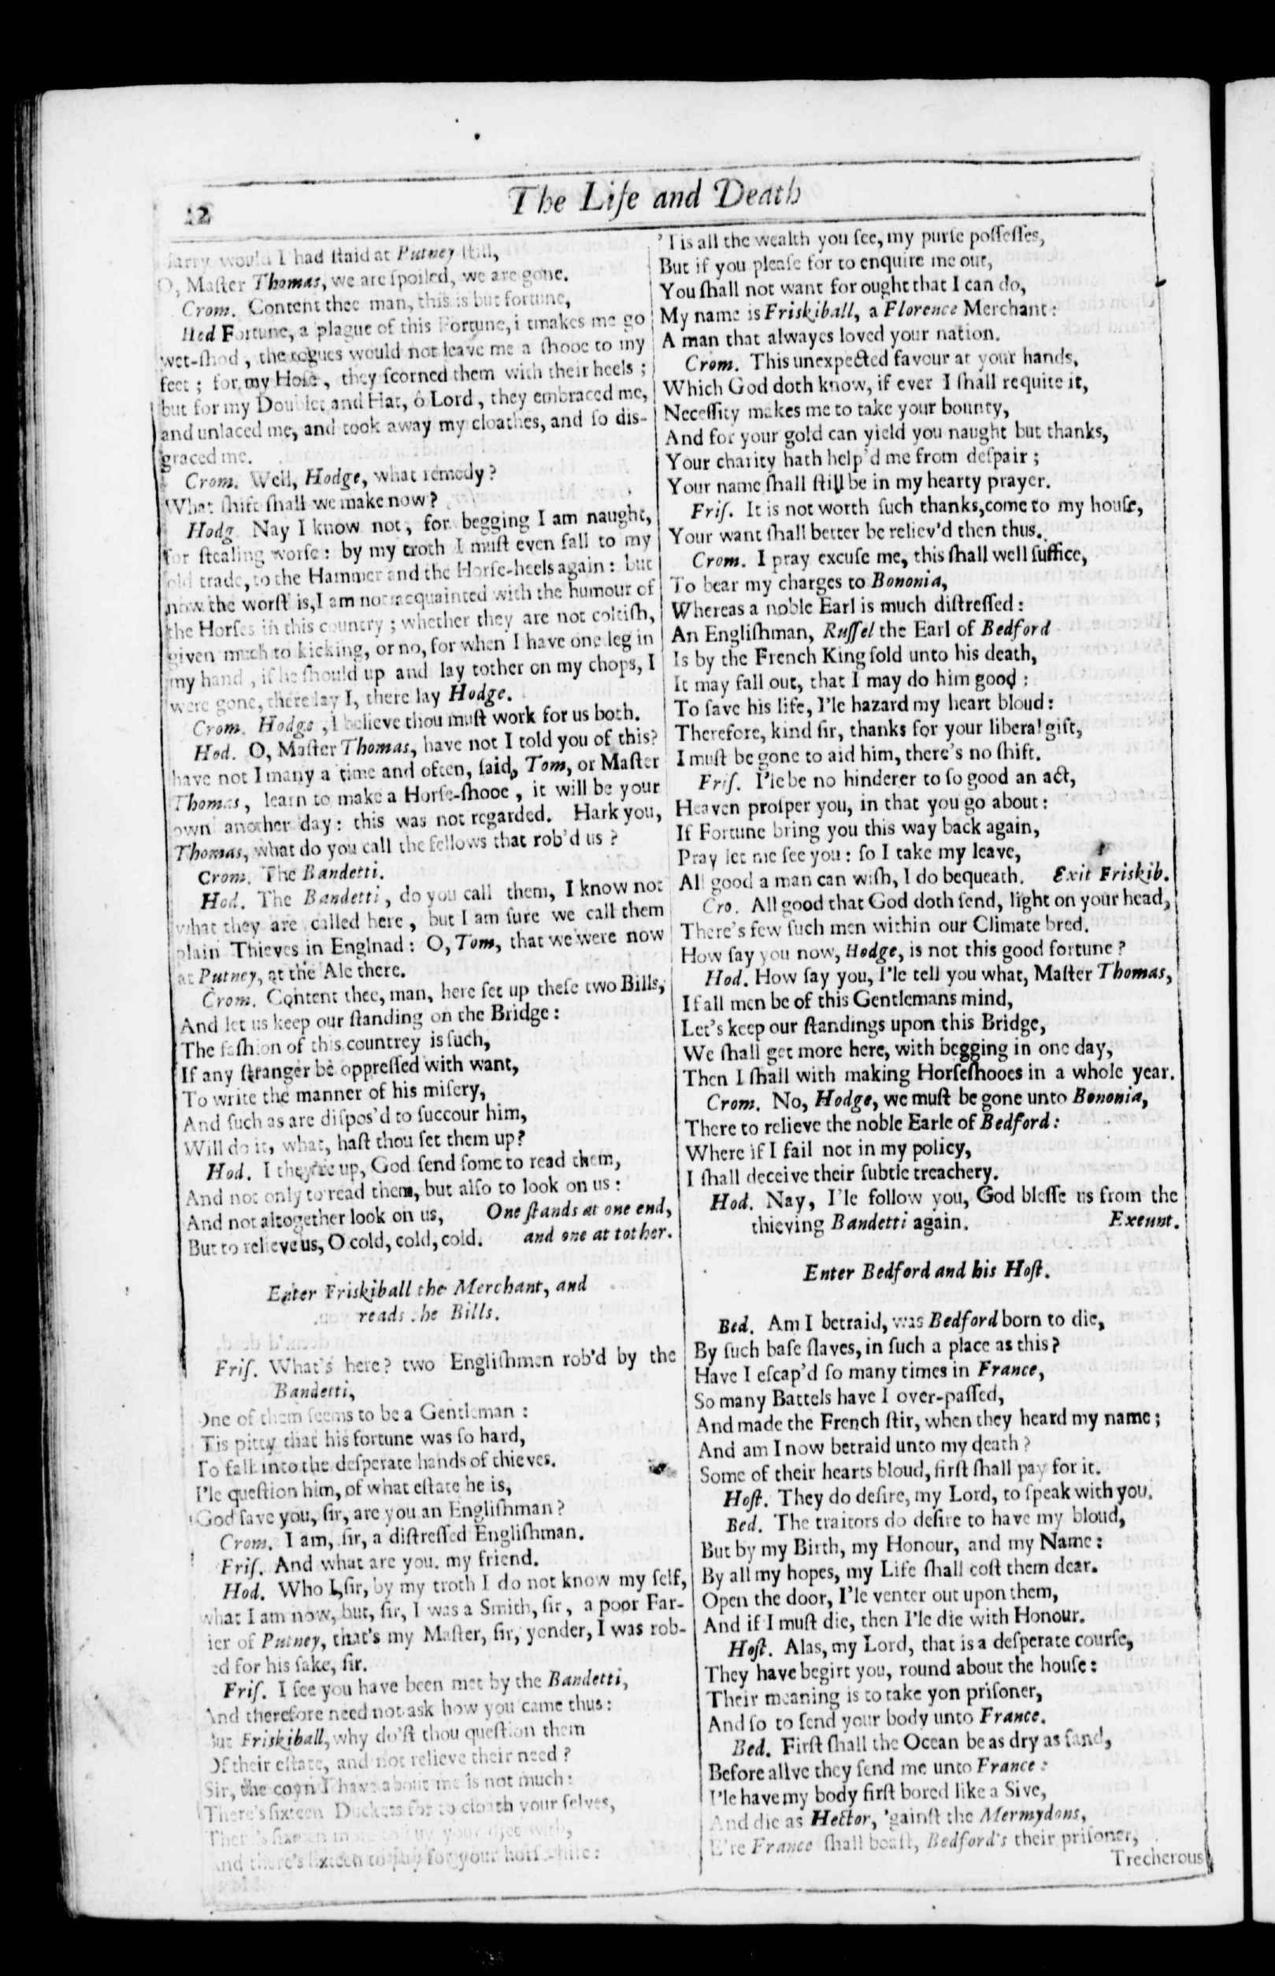 12
The Life and Death
Marry would I had ſtaid at Putney ſtill,
O, Maſter Thomas, we are ſpoiled, we are gone.
Crom. Content thee man, this is but fortune,
Hed Fortune, a plague of this Fortune, i tmakes me go
wet-ſhod, the rogues would not leave me a ſhooe to my
feet; for my Hoſe, they ſcorned them with their heels;
but for my Doublet and Hat, ô Lord, they embraced me,
and unlaced me, and took away my cloathes, and ſo diſ-
graced me.
Crom. Well, Hodge, what remedy?
What ſhift ſhall we make now?
Hodg. Nay I know not, for begging I am naught,
for ſtealing worſe: by my troth I muſt even fall to my
old trade, to the Hammer and the Horſe-heels again: but
now the worſt is, I am not acquainted with the humour of
the Horſes in this country; whether they are not coltiſh,
given much to kicking, or no, for when I have one leg in
my hand, if he ſhould up and lay tother on my chops, I
were gone, there lay I, there lay Hodge.
Crom. Hodge, I believe thou muſt work for us both.
Hod. O, Maſter Thomas, have not I told you of this?
have not I many a time and often, ſaid, Tom, or Maſter
Thomas, learn to make a Horſe-ſhooe, it will be your
own another day: this was not regarded. Hark you,
Thomas, what do you call the fellows that rob'd us?
Crom. The Bandetti.
Hod. The Bandetti, do you call them, I know not
what they are called here, but I am ſure we call them
plain Thieves in Englnad: O, Tom, that we were now
at Putney, at the Ale there.
Crom. Content thee, man, here ſet up theſe two Bills,
And let us keep our ſtanding on the Bridge:
The faſhion of this countrey is ſuch,
If any ſtranger be oppreſſed with want,
To write the manner of his miſery,
And ſuch as are diſpos'd to ſuccour him,
Will do it, what, haſt thou ſet them up?
Hod. I they're up, God ſend ſome to read them,
And not only to read them, but alſo to look on us:
And not altogether look on us, One ſtands at one end,
But to relieve us, O cold, cold, cold. and one at tother.
Enter Friskiball the Merchant, and
reads the Bills.
Friſ. What's here? two Engliſhmen rob'd by the
Bandetti,
One of them ſeems to be a Gentleman:
'Tis pitty that his fortune was ſo hard,
To fall into the deſperate hands of thieves.
I'le queſtion him, of what eſtate he is,
God ſave you, ſir, are you an Engliſhman?
Crom. I am, ſir, a diſtreſſed Engliſhman.
Friſ. And what are you, my friend.
Hod. Who I, ſir, by my troth I do not know my ſelf,
what I am now, but, ſir, I was a Smith, ſir, a poor Far-
ier of Putney, that's my Maſter, ſir, yonder, I was rob-
ed for his ſake, ſir.
Friſ. I ſee you have been met by the Bandetti,
And therefore need not ask how you came thus:
But Friskiball, why do'ſt thou queſtion them
Of their eſtate, and not relieve their need?
Sir, the coyn I have about me is not much:
There's ſixteen Duckets for to cloath your ſelves,
There's ſixteen more to buy your diet with,
And there's ſixteen to pay for your horſ-hire:
'Tis all the wealth you ſee, my purſe poſſeſſes,
But if you pleaſe for to enquire me out,
You ſhall not want for ought that I can do,
My name is Friskiball, a Florence Merchant:
A man that alwayes loved your nation.
Crom. This unexpected favour at your hands,
Which God doth know, if ever I ſhall requite it,
Neceſſity makes me to take your bounty,
And for your gold can yield you naught but thanks,
Your charity hath help'd me from deſpair;
Your name ſhall ſtill be in my hearty prayer.
Friſ. It is not worth ſuch thanks, come to my houſe,
Your want ſhall better be reliev'd then thus.
Crom. I pray excuſe me, this ſhall well ſuffice,
To bear my charges to Bononia,
Whereas a noble Earl is much diſtreſſed:
An Engliſhman, Ruſſel the Earl of Bedford
Is by the French King ſold unto his death,
It may fall out, that I may do him good:
To ſave his life, I'le hazard my heart bloud:
Therefore, kind ſir, thanks for your liberal gift,
I muſt be gone to aid him, there's no ſhift.
Friſ. I'le be no hinderer to ſo good an act,
Heaven proſper you, in that you go about:
If Fortune bring you this way back again,
Pray let me ſee you: ſo I take my leave,
All good a man can wiſh, I do bequeath. Exit Friskib.
Cro. All good that God doth ſend, light on your head,
There's few ſuch men within our Climate bred.
How ſay you now, Hodge, is not this good fortune?
Hod. How ſay you, I'le tell you what, Maſter Thomas,
If all men be of this Gentlemans mind,
Let's keep our ſtandings upon this Bridge,
We ſhall get more here, with begging in one day,
Then I ſhall with making Horſeſhooes in a whole year.
Crom. No, Hodge, we muſt be gone unto Bononia,
There to relieve the noble Earle of Bedford:
Where if I fail not in my policy,
I ſhall deceive their ſubtle treachery.
Hod. Nay, I'le follow you, God bleſſe us from the
thieving Bandetti again. Exeunt.
Enter Bedford and his Hoſt.
Bed. Am I betraid, was Bedford born to die,
By ſuch baſe ſlaves, in ſuch a place as this?
Have I eſcap'd ſo many times in France,
So many Battels have I over-paſſed,
And made the French ſtir, when they heard my name;
And am I now betraid unto my death?
Some of their hearts bloud, firſt ſhall pay for it.
Hoſt. They do deſire, my Lord, to ſpeak with you.
Bed. The traitors do deſire to have my bloud,
But by my Birth, my Honour, and my Name:
By all my hopes, my Life ſhall coſt them dear.
Open the door, I'le venter out upon them,
And if I muſt die, then I'le die with Honour.
Hoſt. Alas, my Lord, that is a deſperate courſe,
They have begirt you, round about the houſe:
Their meaning is to take yon priſoner,
And ſo to ſend your body unto France.
Bed. Firſt ſhall the Ocean be as dry as ſand,
Before alive they ſend me unto France:
I'le have my body firſt bored like a Sive,
And die as Hector, 'gainſt the Mermydons,
E're France ſhall boaſt, Bedford's their priſoner,
Trecherous